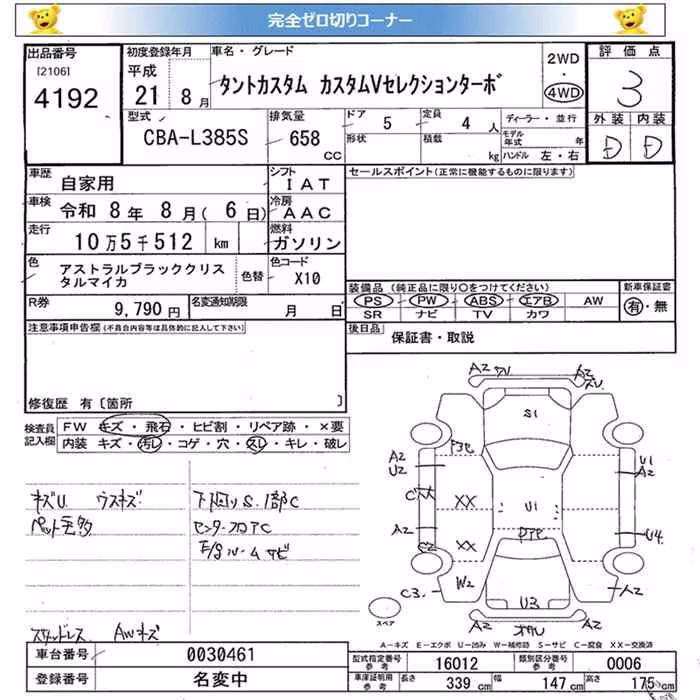 完全ゼロ切りコーナー
出品番号
[2106]
4192
初度登録年月
平成
21 8月
車名・グレード
タントカスタム カスタムVセレクションターボ
2WD
・
4WD
評価点
3
外装 内装
D D
型式
CBA-L385S
排気量
658
CC
ドア
5
定員
4 人
形状
積載
kg
ディーラー・並行
モデル年式 年
ハンドル 左・右
車歴
自家用
シフト
IAT
車検
令和 8年 8月( 6日)
冷房
AAC
走行
10万5千512 km
燃料
ガソリン
色
アストラルブラッククリスタルマイカ
色替
色コード
X10
R券
9,790円
名変通知期限
月 日
セールスポイント(正常に機能するものに限ります)
装備品 (純正品に限り○をつけてください)
PS PW ABS エアB AW
SR ナビ TV カワ
新車保証書
有・無
後日品
保証書・取説
注意事項申告欄(不具合内容等は具体的に記入して下さい)
修復歴 有〔箇所 〕
検査員記入欄
FW キズ・飛石・ヒビ割・リペア跡・×要
内装 キズ・汚レ・コゲ・穴・スレ・キレ・破レ
キズU ウスキズ
下回りS.1部C
センターフロアC
E/gルームサビ
スタッドレス AWキズ
A2 A2
S1
A2
U2
U1
A2
XX
U1
A2
XX
U4
C2
W2
C3
U3
A2
A2 A2
スペア
A-キズ E-エクボ U-凹み W-補修跡 S-サビ C-腐食 XX-交換済
車台番号
0030461
登録番号
名変中
型式指定番号
参考
16012
類別区分番号
参考
0006
車庫証明用
参考
長さ 339 cm 幅 147 cm 高さ 175 cm